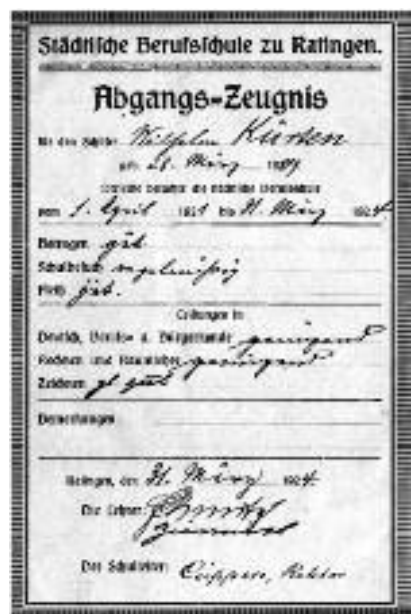 Städtische Berufsschule zu Ratingen.
Abgangs=Zeugnis
für den Schüler Wilhelm Kürten
geb. 28. März
besuchte die städtische Berufsschule
vom 1. April 1921 bis 31. März 1924
Betragen gut
Schulbesuch regelmäßig
Fleiß gut.
Leistungen in
Deutsch, Berufs= u. Bürgerkunde genügend
Rechnen und Raumlehre genügend
Zeichnen gut
Bemerkungen
Ratingen, den 31. März 1924
Die Lehrer:
Der Schulleiter: Cüppers, Rektor